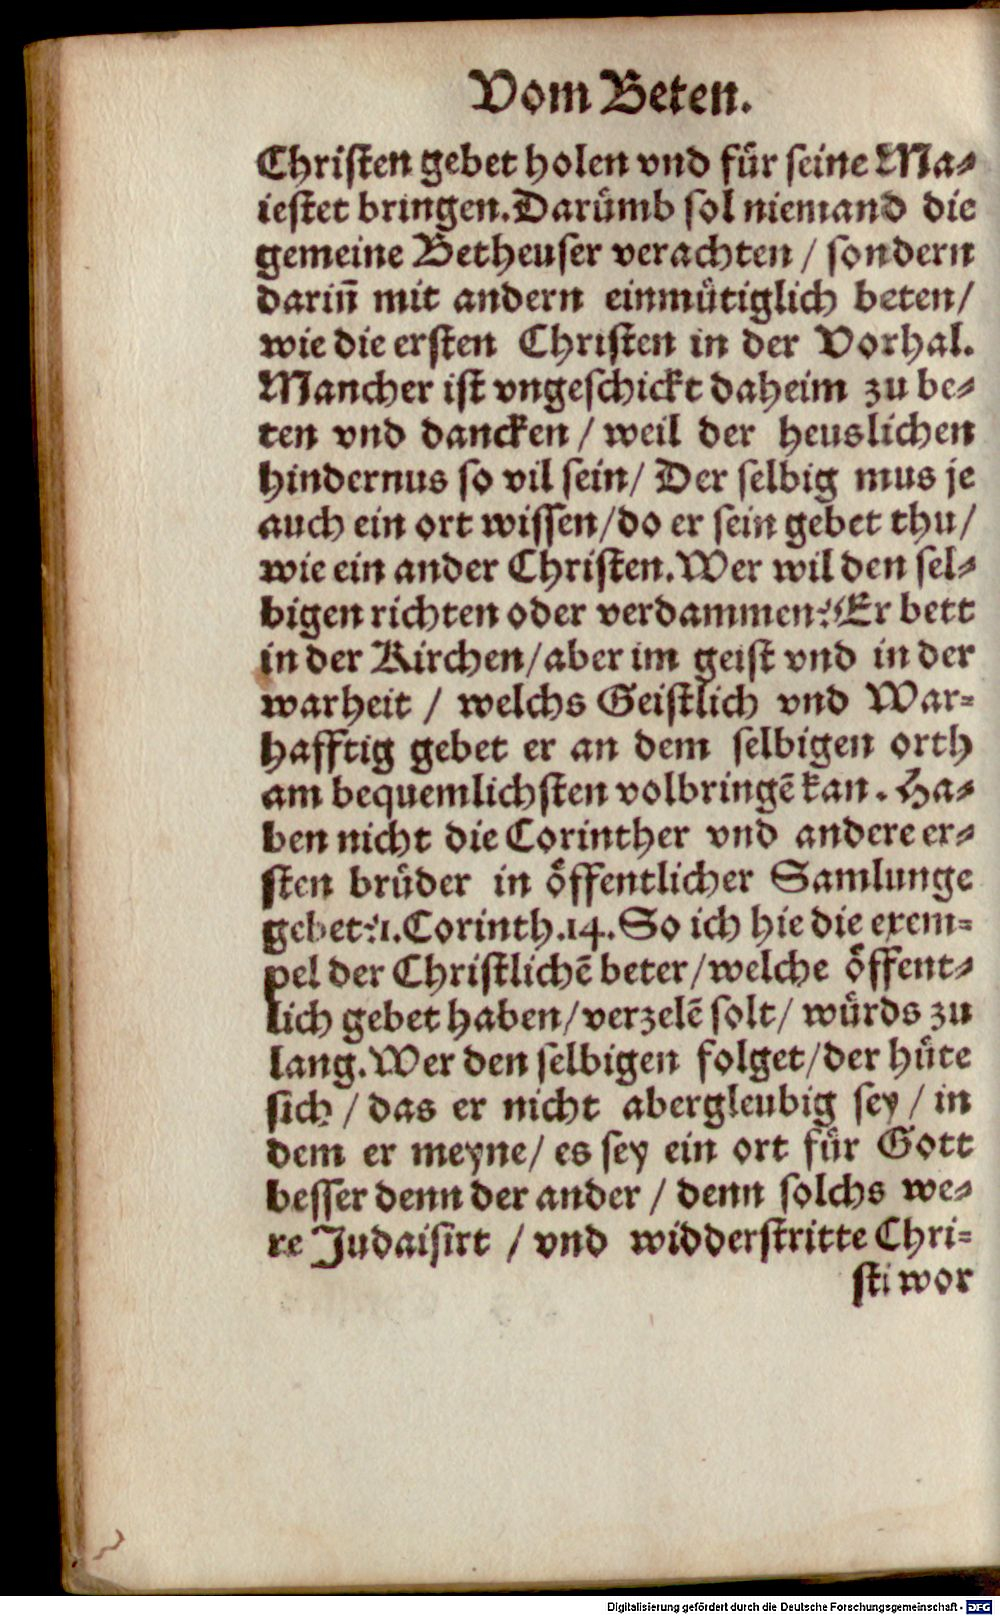 Vom Beten.
Christen gebet holen vnd für seine Ma-
iestet bringen. Darümb sol niemand die
gemeine Betheuser verachten / sondern
dariñ mit andern einmütiglich beten/
wie die ersten Christen in der Vorhal.
Mancher ist vngeschickt daheim zu be-
ten vnd dancken / weil der heuslichen
hindernus so vil sein/ Der selbig mus je
auch ein ort wissen/do er sein gebet thu/
wie ein ander Christen. Wer wil den sel-
bigen richten oder verdammen? Er bett
in der Kirchen/aber im geist vnd in der
warheit / welchs Geistlich vnd War-
hafftig gebet er an dem selbigen orth
am bequemlichsten volbringē kan. Ha-
ben nicht die Corinther vnd andere er-
sten brüder in öffentlicher Samlunge
gebet? 1. Corinth. 14. So ich hie die exem-
pel der Christlichē beter/welche öffent-
lich gebet haben/verzelē solt/ würds zu
lang. Wer den selbigen folget/der hüte
sich / das er nicht abergleubig sey / in
dem er meyne/ es sey ein ort für Gott
besser denn der ander / denn solchs we-
re Judaisirt / vnd widderstritte Chri-
sti wor
Digitalisierung gefördert durch die Deutsche Forschungsgemeinschaft - DFG